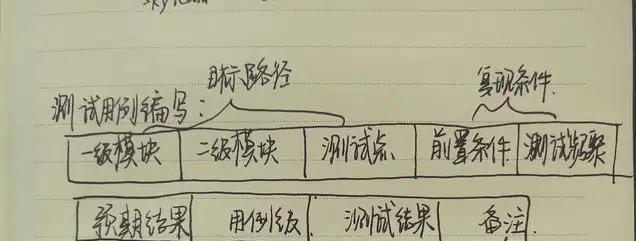 目标路径 复现条件
测试用例编写:
一级模块 二级模块 测试点 前置条件 测试步骤
预期结果 用例级 测试结果 备注